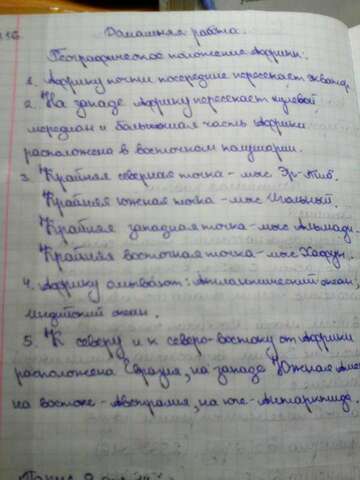 116
Домашняя работа.
Географическое положение Африки.
1. Африку почти посередине пересекает экватор
2. На западе Африку пересекает нулевой
меридиан и большая часть Африки
расположена в восточном полушарии.
3. Крайняя северная точка - мыс Эр-Тиб.
Крайняя южная точка - мыс Игольный.
Крайняя западная точка - мыс Альмади.
Крайняя восточная точка - мыс Хафун.
4. Африку омывают: Атлантический океан,
индийский океан.
5. К северу и к северо-востоку от Африки
расположена Евразия, на западе Южная Аме
на востоке - Австралия, на юге - Антарктида.